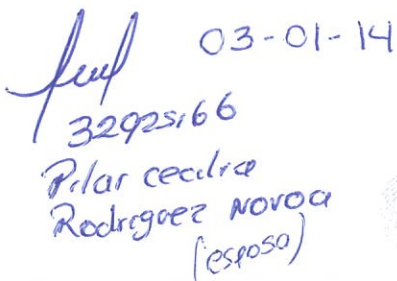 03-01-14
32925166
Pilar cecilia
Rodriguez Novoa
(esposa)